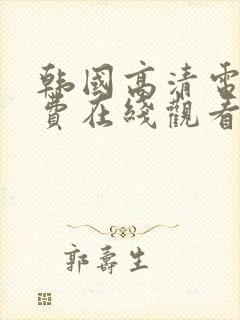 韩国高清電
費在綫觀看
郭壽生